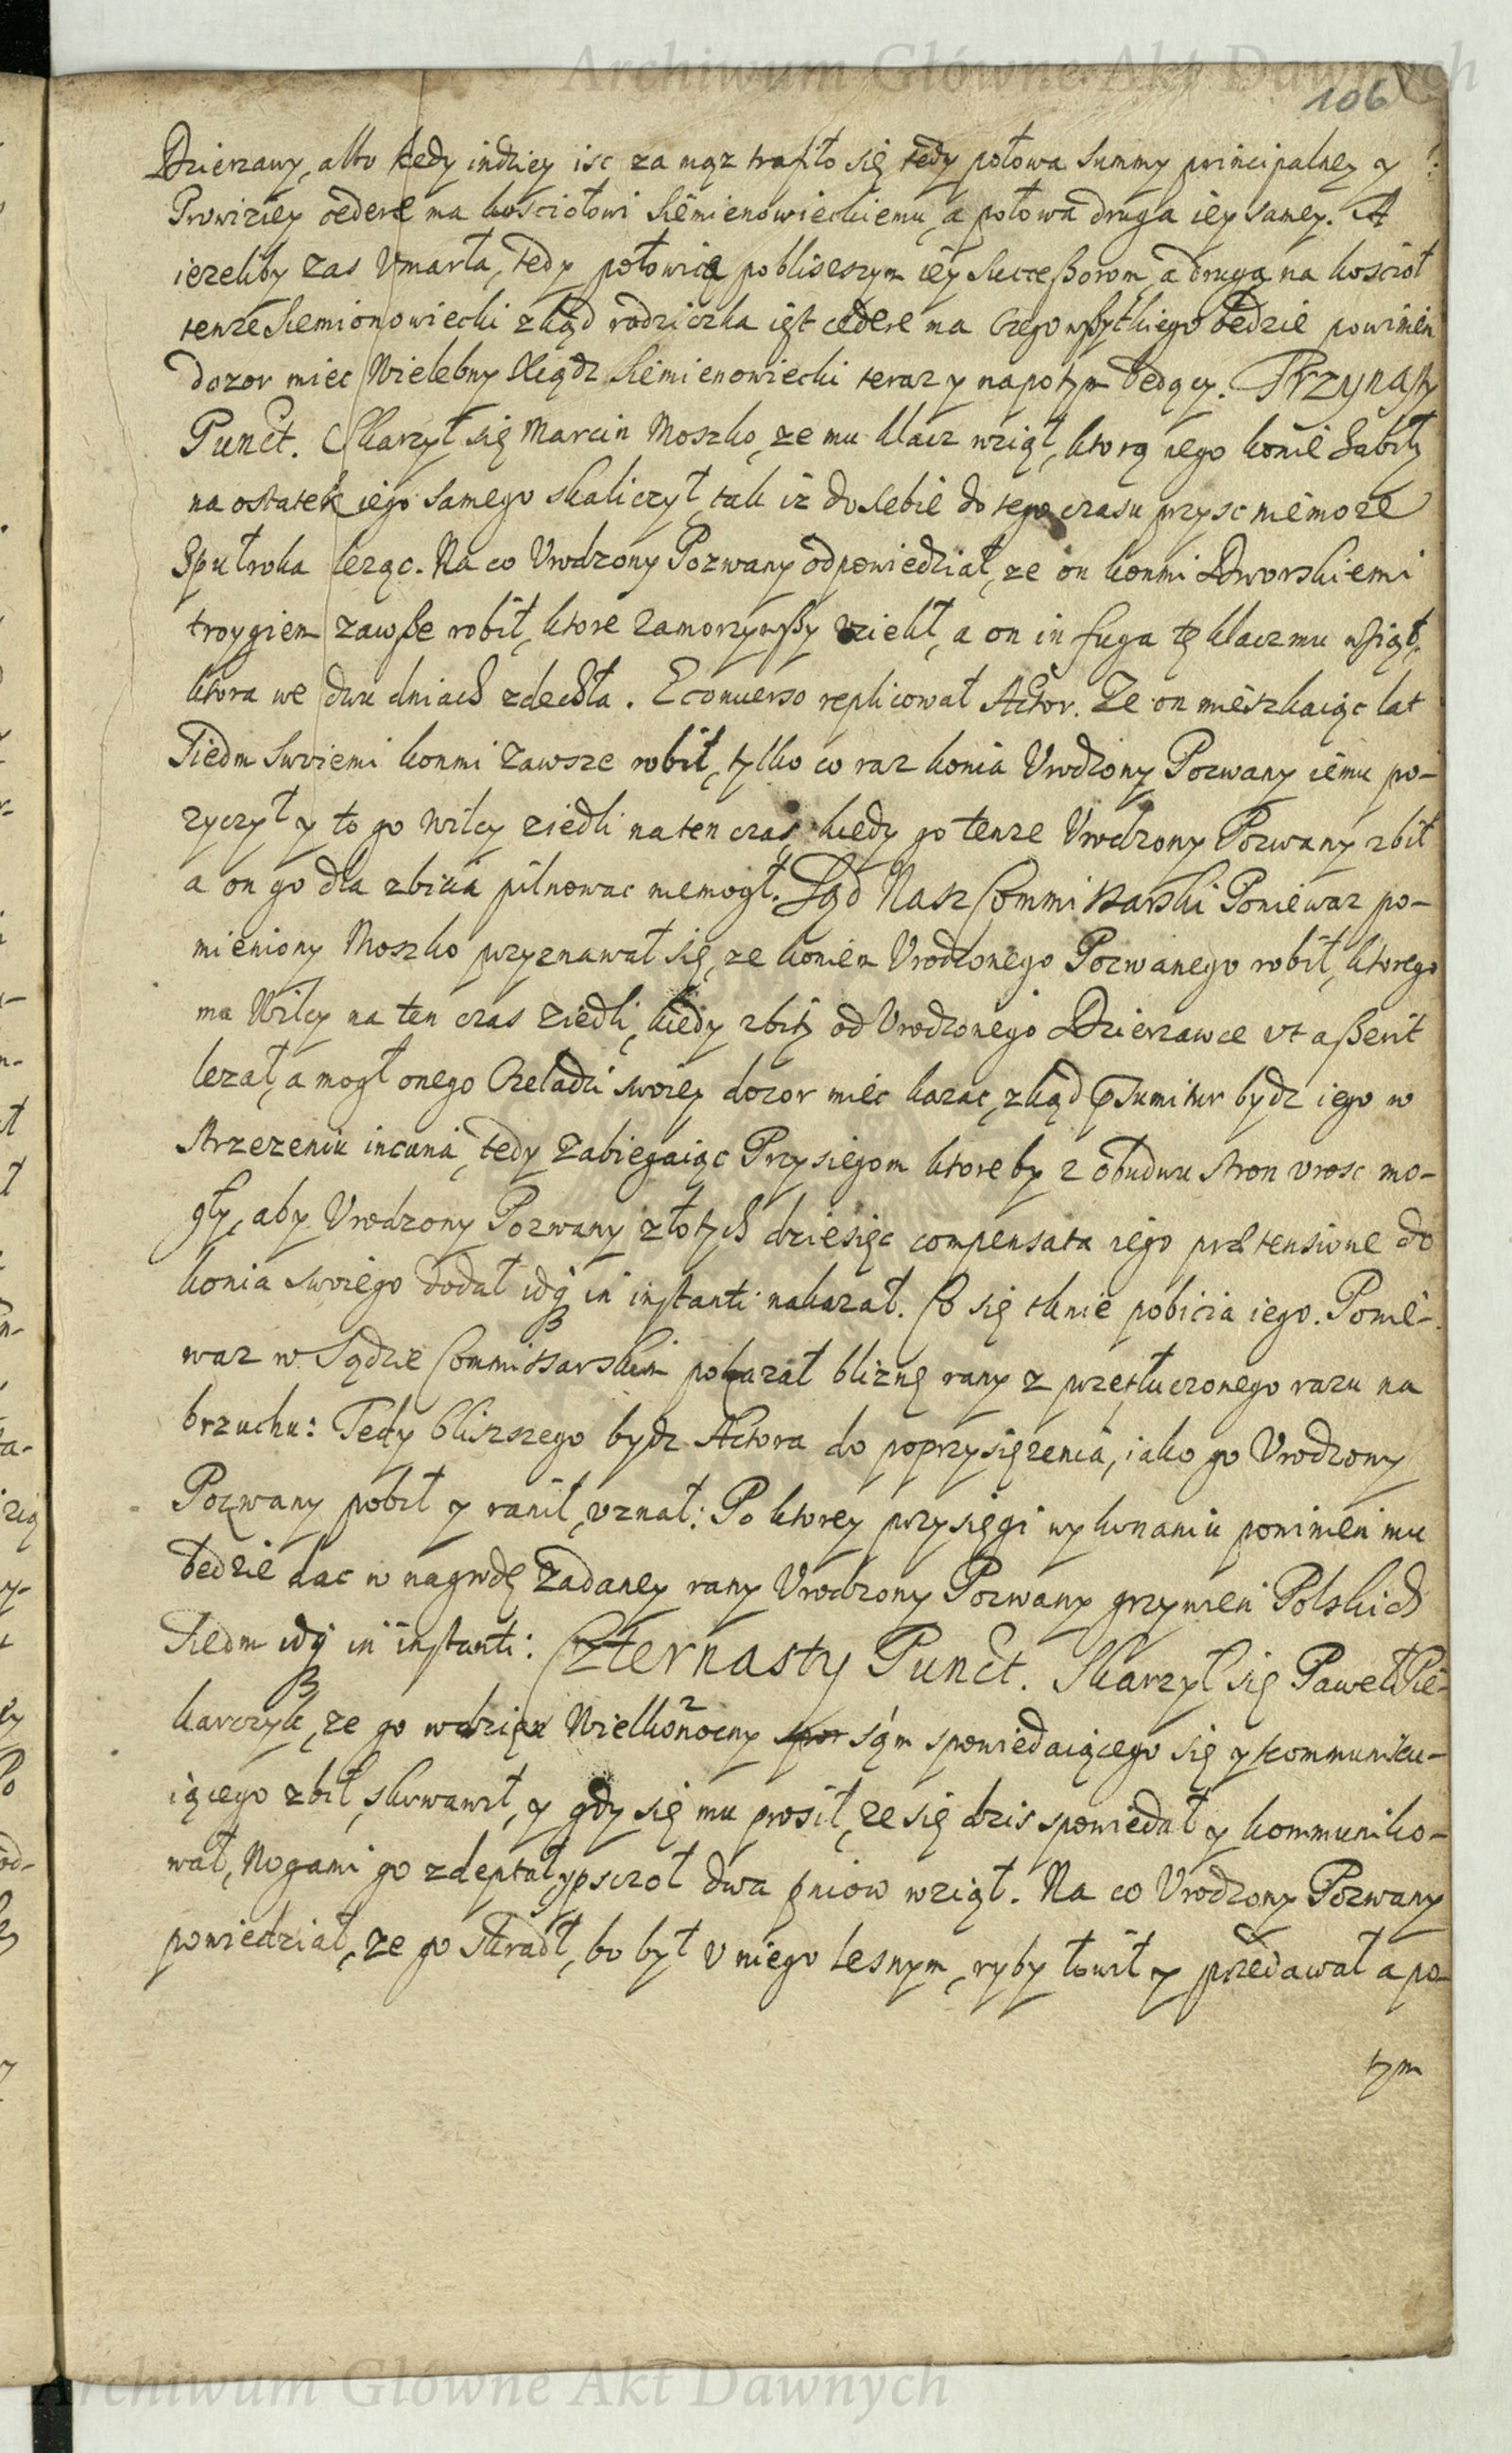 Archiwum Główne Akt Dawnych
106
Dzierzawy, albo kedy indziey isc za mąz trafiło się tedy połowa summy principalney y
Prowiziey cedere ma kosciołowi Siemienowieckiemu, a połowa druga iey samey. A
iezeliby zas vmarła, tedy połowica pobliszszym iey Succeßorom, a druga na kosciół
tenze Siemionowiecki zkąd rodziczka iest cedere ma Czego wßytkiego bedzie powinien
dozor miec Wielebny Xiądz Siemienowiecki teraz y napotym bedący. Trzynasty
Punct. Skarzył się Marcin Moszko, ze mu klacz wziął, ktorą iego konie
na ostatek iego samego skaliczył, tak iz do siebie do tego czasu przysc niemoze
Spułroka leząc. Na co Vrodzony Pozwany odpowiedział, ze on konmi Dworskiemi
troygiem zawße robił, ktore zamorzywßy vciekł, a on in fuga tę klacz mu wziął,
ktora we dwu dniach zdechła. E conuerso replicował Actor. Ze on mieszkaiąc lat
Siedm swoiemi konmi zawsze robił, tylko co raz konia Vrodzony Pozwany iemu po-
zyczył y to go wilcy ziedli na ten czas, kiedy go tenze Vrodzony Pozwany zbił
a on go dla zbicia pilnowac niemogł. Sąd Nasz Commissarski Poniewaz po-
mieniony Moszko przyznawał się, ze koniem Vrodzonego Pozwanego robił, ktorego
ma Wilcy na ten czas ziedli, kiedy zbity od Vrodzonego Dzierzawce vt aßerit
lezał, a mogł onego Czeladzi swoiey dozor miec kazac, zkąd psumitur bydz iego w
strzezeniu incuria, tedy zabiegaiąc Przysięgom ktore by z obudwu stron vrosc mo-
gły, aby Vrodzony Pozwany złotych dziesięc compensata iego prætensione do
konia swoiego dodał idq̃ in instanti nakazał. Co się tknie pobicia iego. Ponie-
waz w Sądzie Commissarskim pokazał bliznę rany z przetłuczonego razu na
brzuchu: Tedy bliszszego bydz Actora do poprzysięzenia, iako go Vrodzony
Pozwany pobił y ranił, vznał: Po ktorey przysięgi wykonaniu powinien mu
bedzie dac w nagrodę zadaney rany Vrodzony Pozwany grzywien Polskich
Siedm idq̃ in instanti: Czternasty Punct. Skarzył się Paweł Pie-
karczyk, ze go w dzien Wielkonocny sam spowiedaiącego się y kommuniku-
iącego zbił, skrwawił, y gdy się mu prosił, ze się dzis spowiedał y kommuniko-
wał, Nogami go zdeptał y pszczoł dwa pniow wziął. Na co Vrodzony Pozwany
powiedział, ze go skradł, bo był v niego lesnym, ryby łowił y przedawał a po-
tym
Archiwum Główne Akt Dawnych